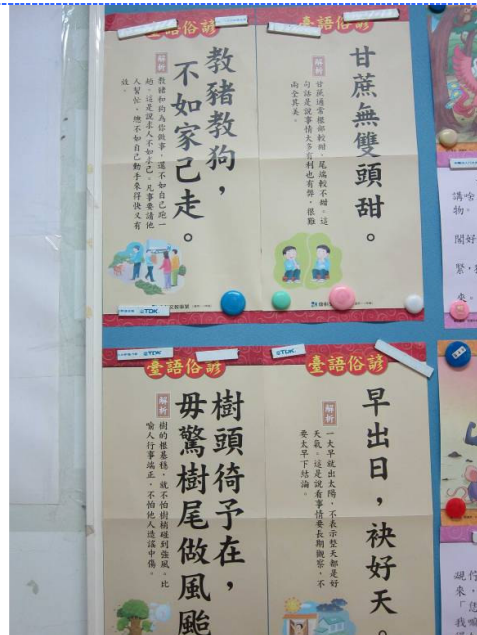 臺語俗諺
甘蔗無雙頭甜。
解析
甘蔗通常根部較甜,尾端較不甜。這
句話是說事情大多有利也有弊,很難
兩全其美。
臺語俗諺
教豬教狗,
不如家己走。
解析
教豬和狗為你做事,還不如自己跑一
趟。這是說求人不如求己。凡事要請他
人幫忙,總不如自己動手來得快又有
效。
TDK
TDK
TDK
臺語俗諺
早出日,袂好天。
解析
一大早就出太陽,不表示整天都是好
天氣。這是說看事情要長期觀察,不
要太早下結論。
臺語俗諺
樹頭徛予在,
毋驚樹尾做風颱
解析
樹的根基穩,就不怕樹梢碰到強風。比
喻人行事端正,不怕他人造謠中傷。
講啥
物。
鬧好
緊,
來。
來,
我